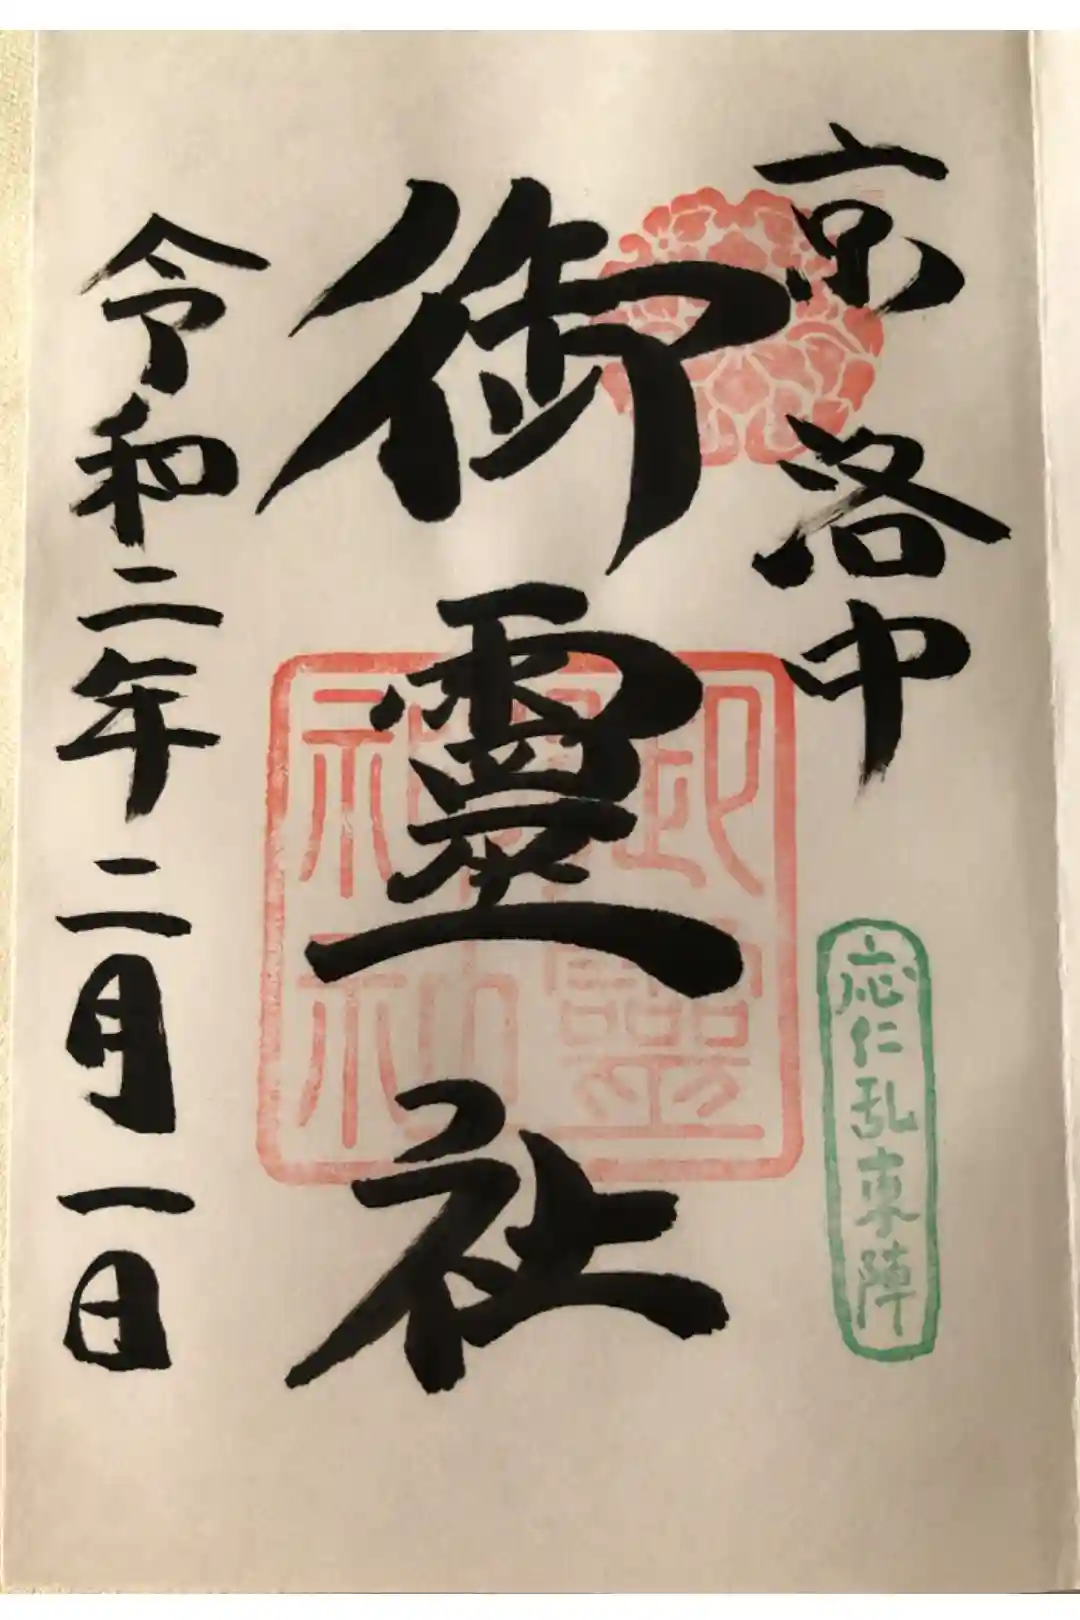 京洛中
応仁乱東陣
御霊社
御霊神社
令和二年二月一日